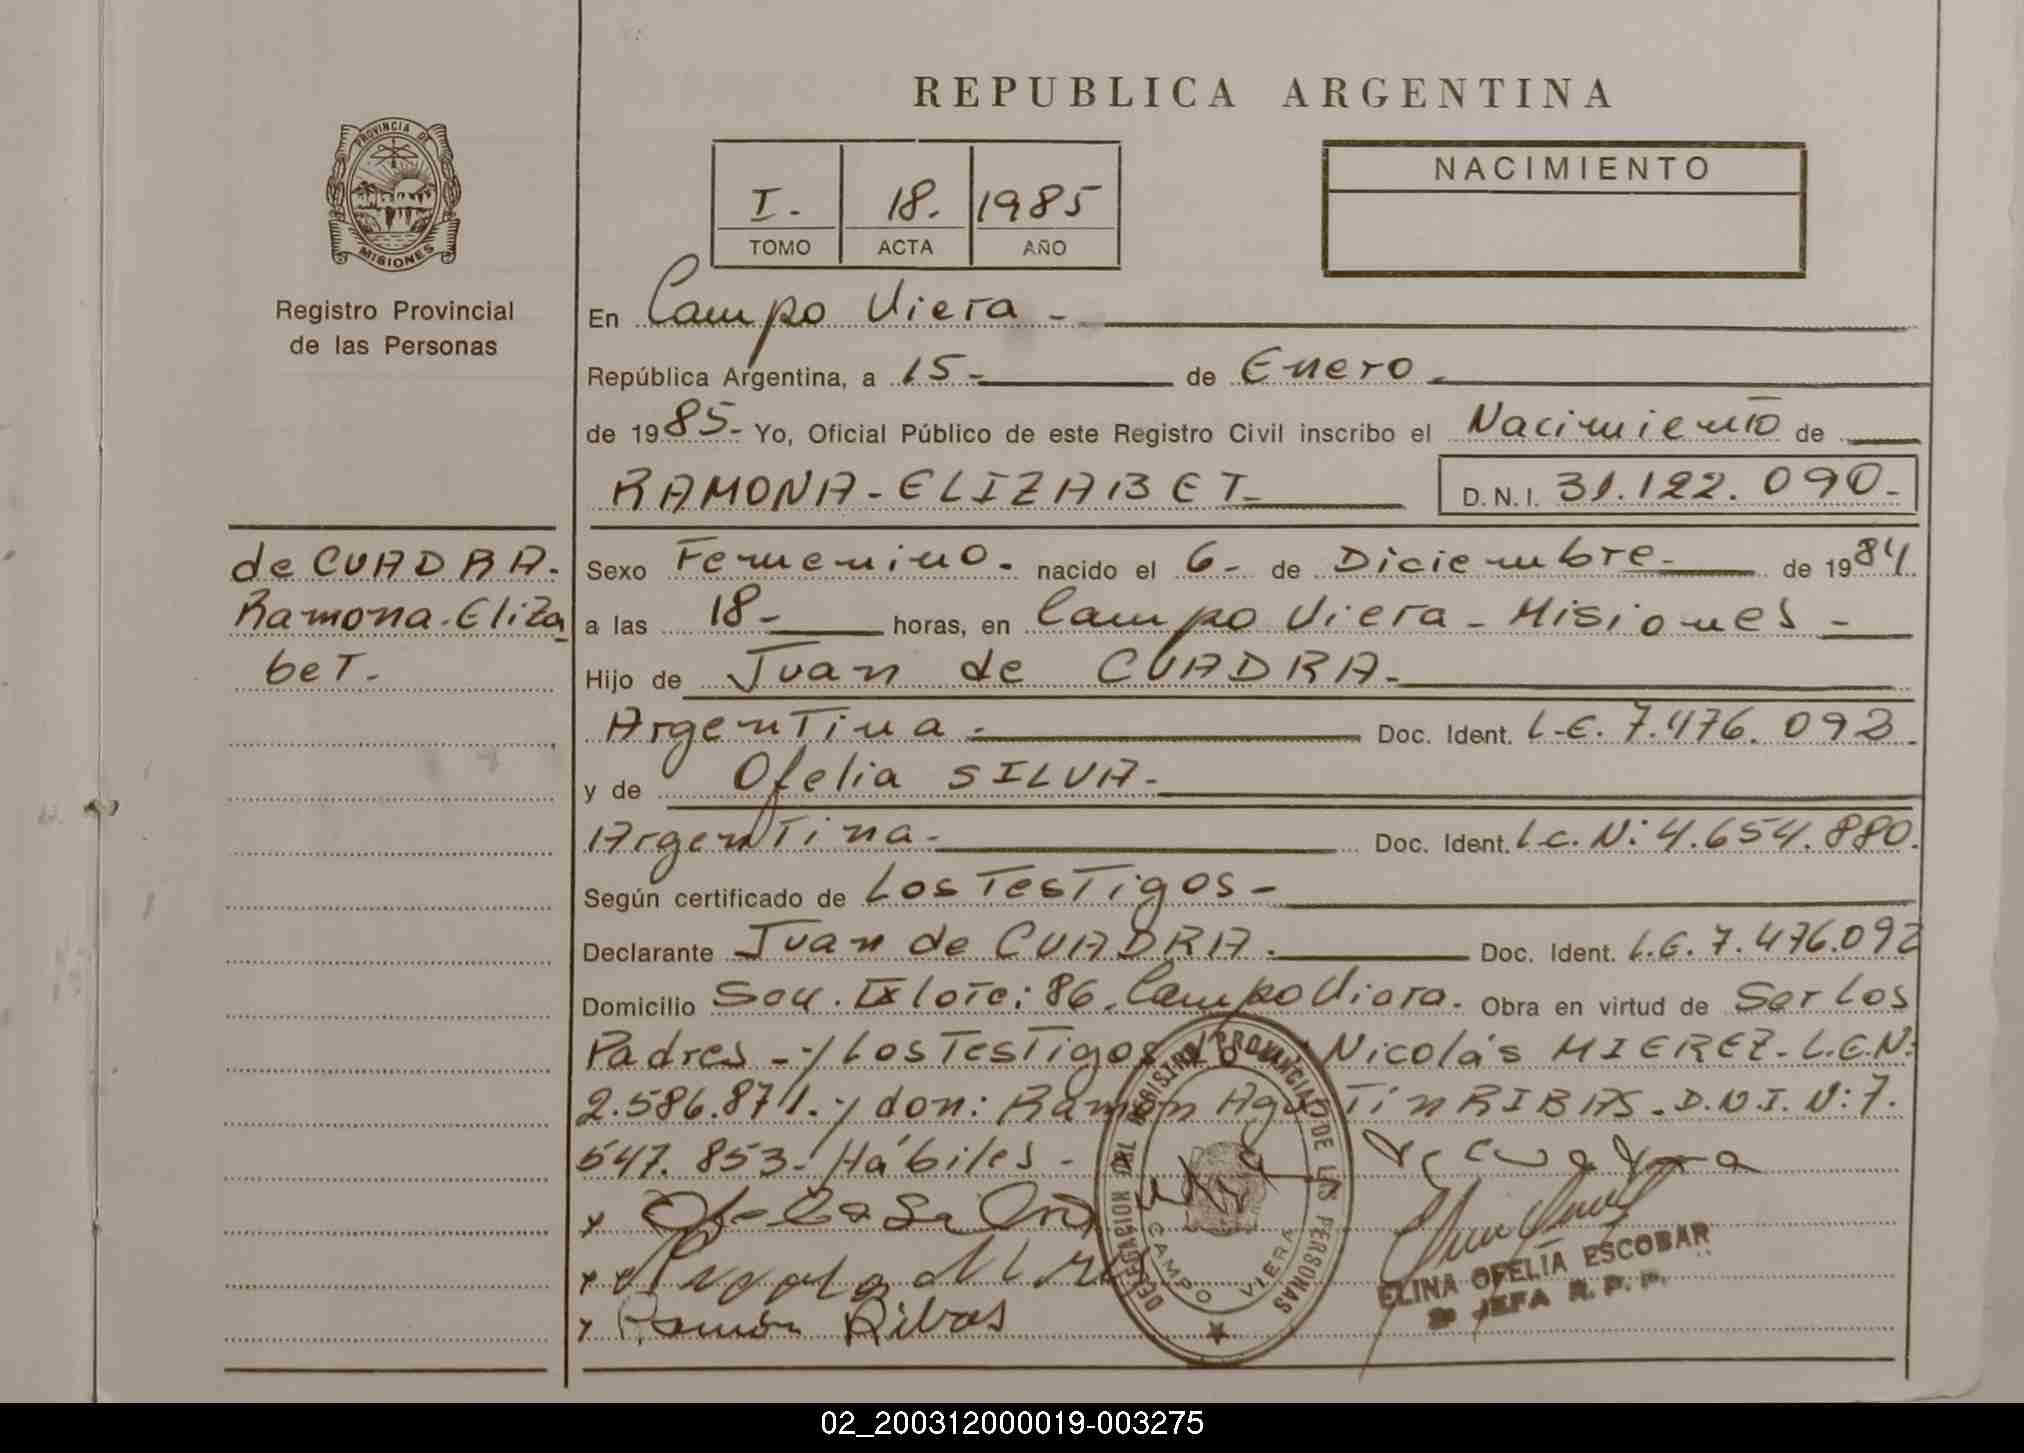 REPUBLICA ARGENTINA
PROVINCIA DE
MISIONES
Registro Provincial
de las Personas
I. 18. 1985
TOMO ACTA AÑO
NACIMIENTO
En Campo Viera -
República Argentina, a 15- de Enero.
de 1985- Yo, Oficial Público de este Registro Civil inscribo el Nacimiento de
RAMONA-ELIZABET- D.N.I. 31.122.090-
de CUADRA.
Ramona-Eliza
beT.
Sexo Femenino. nacido el 6- de Diciembre- de 1984.
a las 18- horas, en Campo Viera - Misiones -
Hijo de Juan de CUADRA-
Argentina - Doc. Ident. L-E. 7.476.092.
y de Ofelia SILVA-
Argentina- Doc. Ident. L.c. N: 4.654.880.
Según certificado de Los Testigos-
Declarante Juan de CUADRA. Doc. Ident. L.E. 7.476.092
Domicilio Sec. IX lote: 86. Campo Viera. Obra en virtud de Ser Los
Padres - y Los Testigos Nicolás MIEREZ- L.E.N:
2.586.871. y don: Ramón Agustín RIBAS. D.N.I. N: 7.
547.853- Hábiles -
Ramón Ribas
DELEGACION DEL REGISTRO PROVINCIAL DE LAS PERSONAS
CAMPO VIERA
ELINA OFELIA ESCOBAR
JEFA R.P.P.
02_200312000019-003275